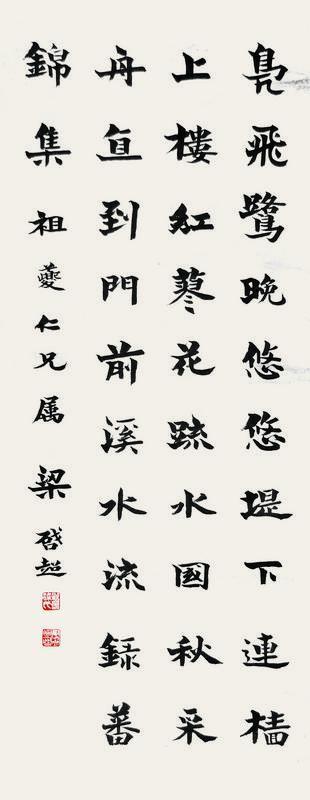 鳬飛鷺晚悠悠堤下連檣
上樓紅蓼花疏水國秋采
舟直到門前溪水流錄蕃
錦集 祖蘷仁兄属 梁啓超